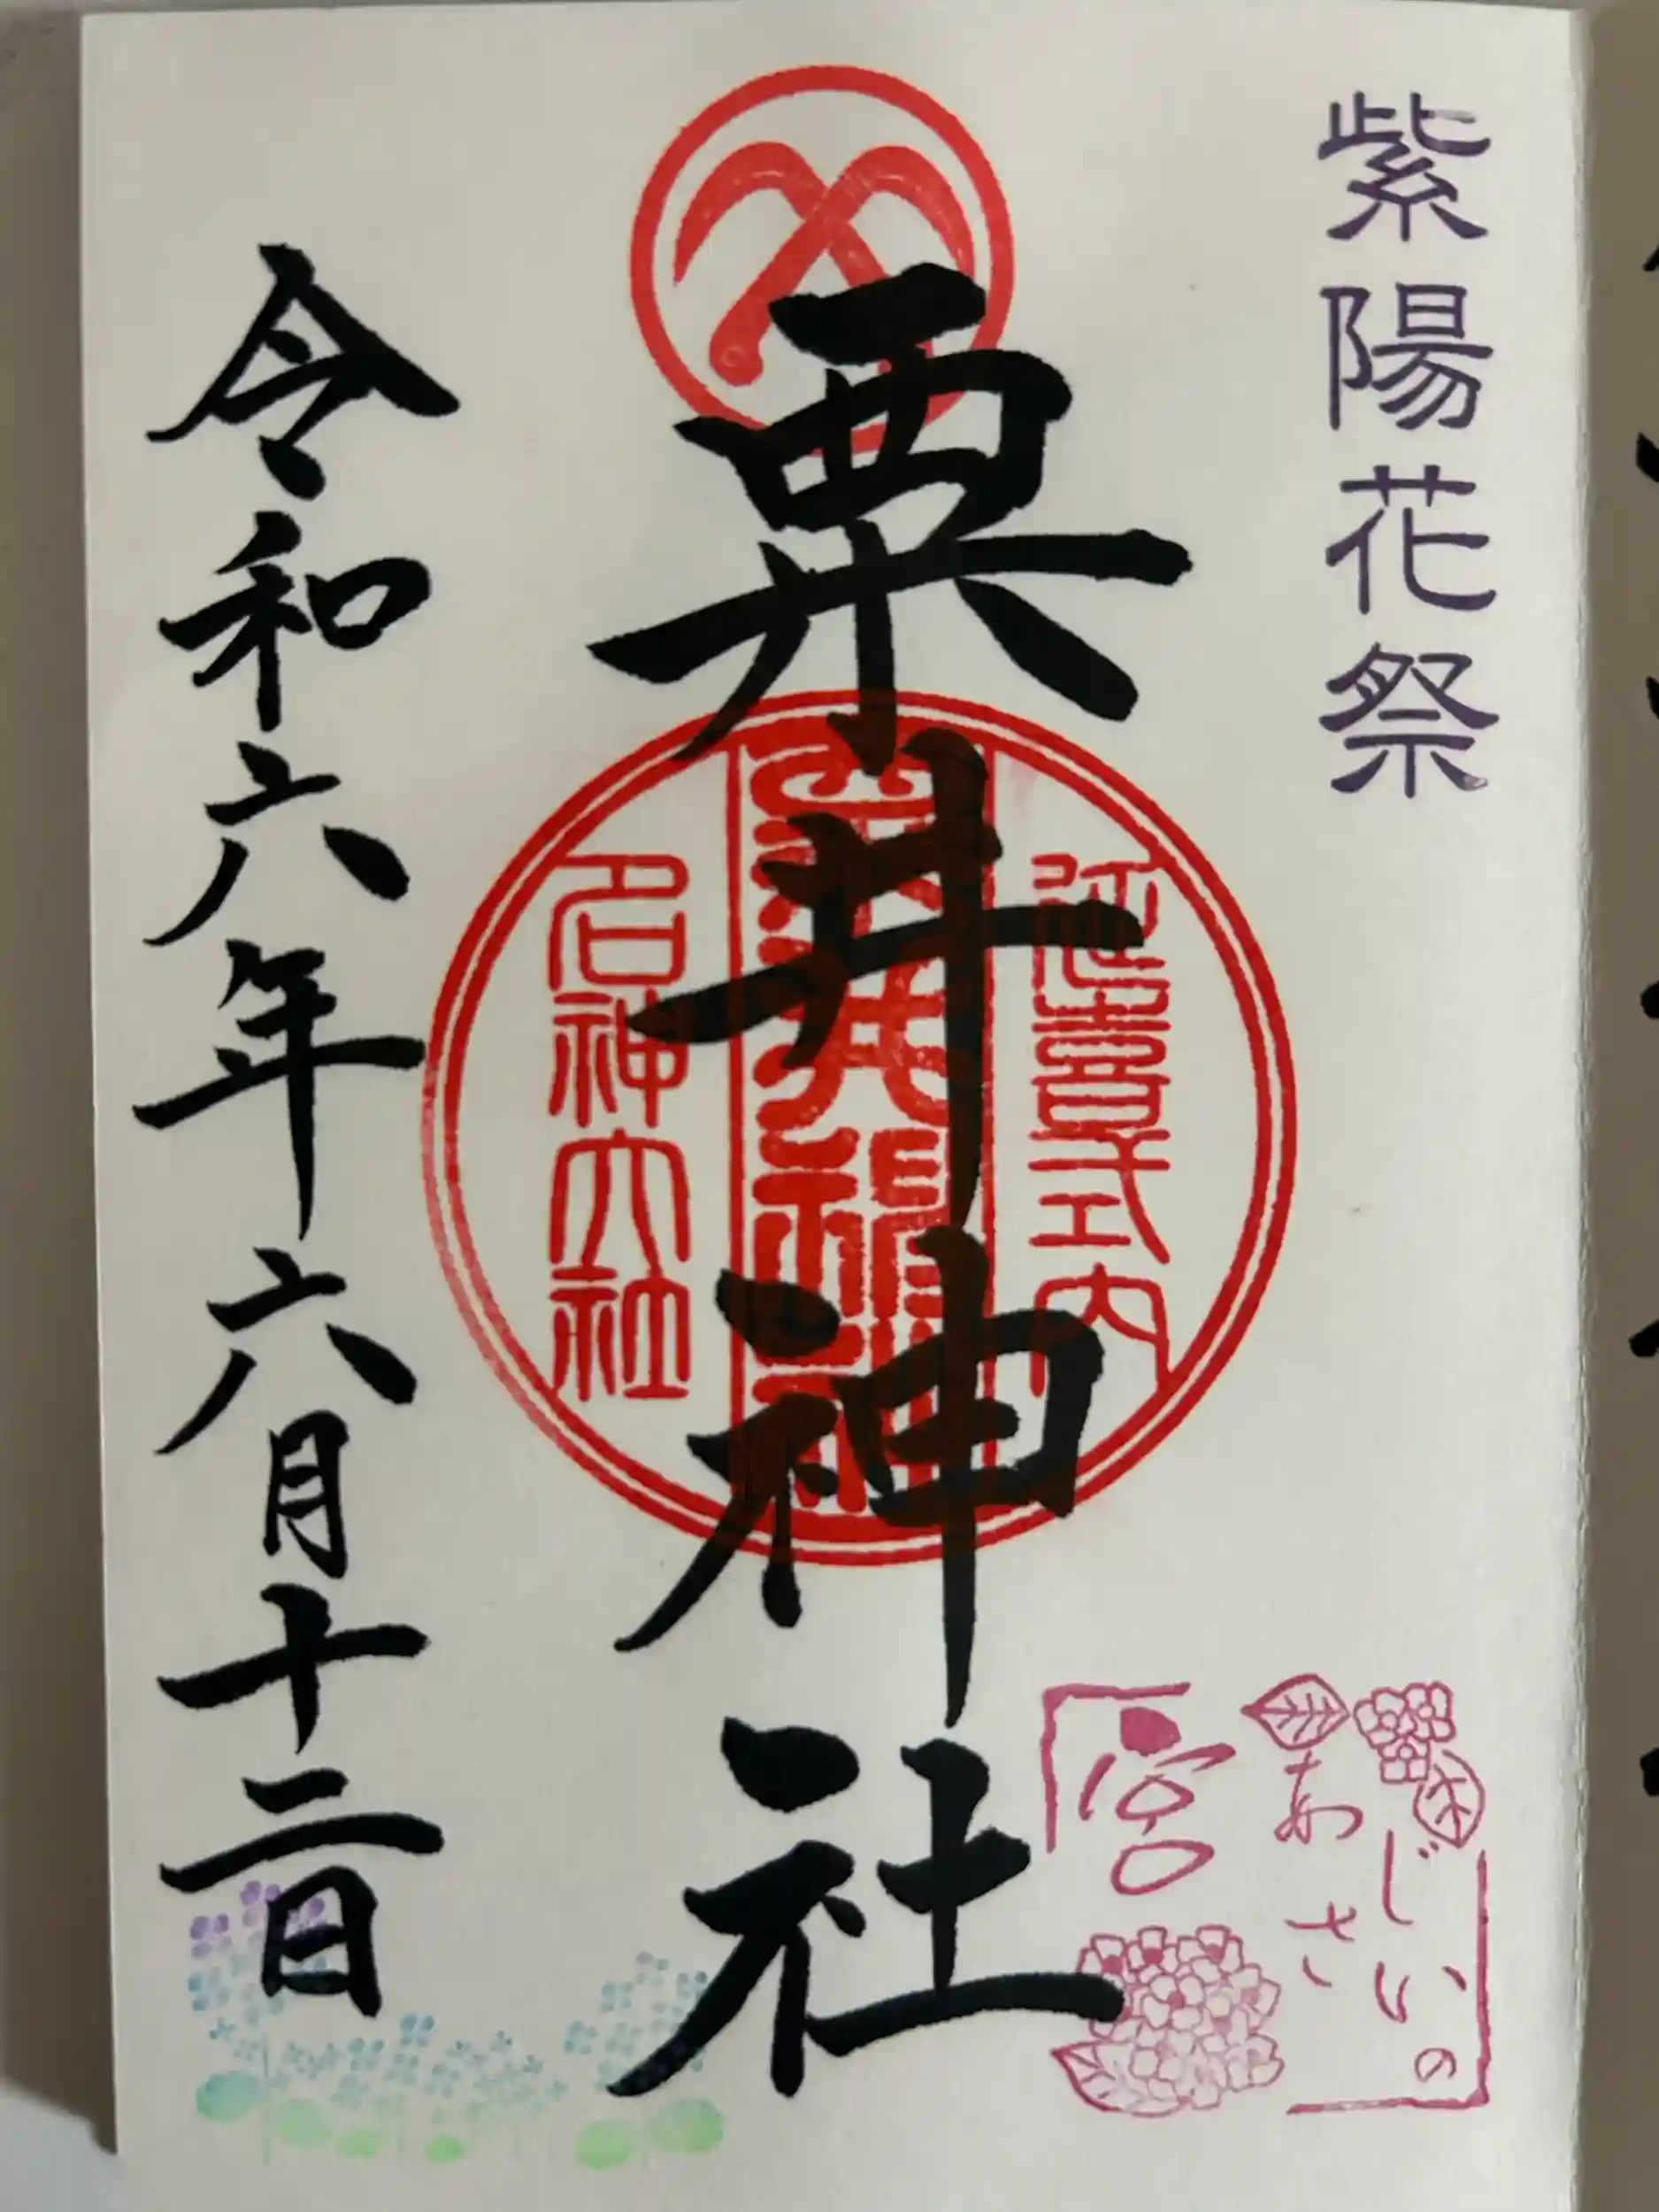 紫陽花祭
粟井神社
延喜式内
名神大社
あじさいの
宮
令和六年六月十二日